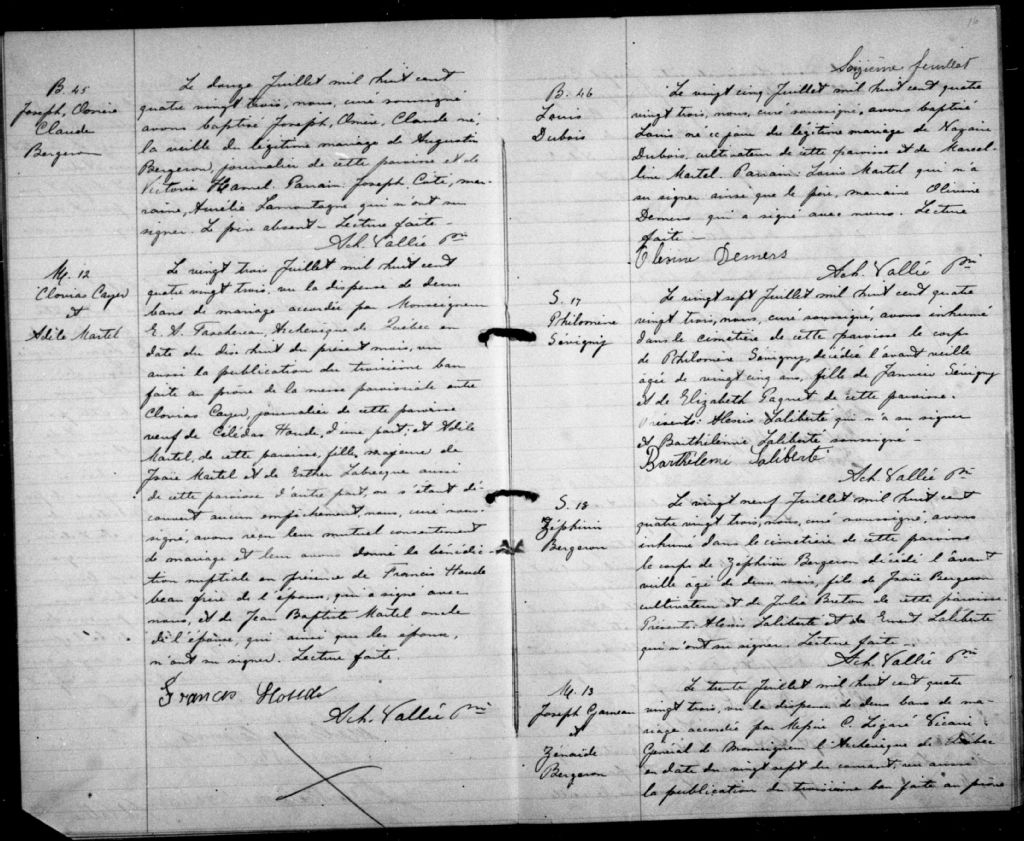 B. 45
Joseph, Omire
Claude
Bergeron
Le douze Juillet mil huit cent
quatre vingt trois, nous, curé soussigné
avons baptisé Joseph, Omire, Claude né
la veille du légitime mariage de Augustin
Bergeron, journalier de cette paroisse et de
Victoria Hamel. Parrain Joseph Coté, mar-
raine, Aurélie Lamontagne qui n'ont su
signer. Le père absent - Lecture faite -
Ach. Vallée Ptre
M. 12
Clovias Cayer
et
Adèle Martel
Le vingt trois Juillet mil huit cent
quatre vingt trois, vu la dispense de deux
bans de mariage accordée par Monseigneur
E. A. Taschereau, Archevêque de Québec en
date du dix huit du présent mois, vu
aussi la publication du troisième ban
faite au prône de la messe paroissiale entre
Clovias Cayer, journalier de cette paroisse
veuf de Celédas Houde, d'une part; et Adèle
Martel, de cette paroisse, fille majeure de
Isaïe Martel et de Esther Labrecque aussi
de cette paroisse d'autre part, ne s'étant dé-
couvert aucun empêchement, nous, curé sous-
signé, avons reçu leur mutuel consentement
de mariage et leur avons donné la bénédic-
tion nuptiale en présence de Francis Houde
beau frère de l'époux, qui a signé avec
nous, et de Jean Baptiste Martel oncle
de l'épouse, qui ainsi que les époux,
n'ont su signer. Lecture faite.
Francis Houde
Ach. Vallée Ptre
16
Seizième feuillet
B. 46
Louis
Dubois
Le vingt cinq Juillet mil huit cent quatre
vingt trois, nous, curé soussigné, avons baptisé
Louis né ce jour du légitime mariage de Nazaire
Dubois cultivateur de cette paroisse et de Marcel-
line Martel. Parrain: Louis Martel qui n'a
su signer ainsi que le père, marraine Olivine
Demers qui a signé avec nous. Lecture
faite -
Olevine Demers
Ach. Vallée Ptre
S. 17
Philomène
Sévigny
Le vingt sept Juillet mil huit cent quatre
vingt trois, nous, curé soussigné, avons inhumé
dans le cimetière de cette paroisse le corps
de Philomène Sévigny, décédée l'avant veille
âgée de vingt cinq ans, fille de Janvier Sévigny
et de Elizabeth Paquet de cette paroisse.
Présents: Alexis Laliberté qui n'a su signer
et Barthélémie Laliberté soussigné -
Barthélemi Laliberté
Ach. Vallée Ptre
S. 18
Zéphirin
Bergeron
Le vingt neuf Juillet mil huit cent
quatre vingt trois, nous, curé soussigné, avons
inhumé dans le cimetière de cette paroisse
le corps de Zéphirin Bergeron décédé l'avant
veille âgé de deux mois, fils de Isaïe Bergeron
cultivateur et de Julie Breton de cette paroisse
Présents: Alexis Laliberté et de Ernest Laliberté
qui n'ont su signer. Lecture faite -
Ach. Vallée Ptre
M. 13
Joseph Garneau
et
Zénaïde
Bergeron
Le trente Juillet mil huit cent quatre
vingt trois, vu la dispense de deux bans de ma-
riage accordée par Messire C. Legaré Vicaire
Général de Monseigneur l'Archevêque de Québec
en date du vingt sept du courant, vu aussi
la publication du troisième ban faite au prône